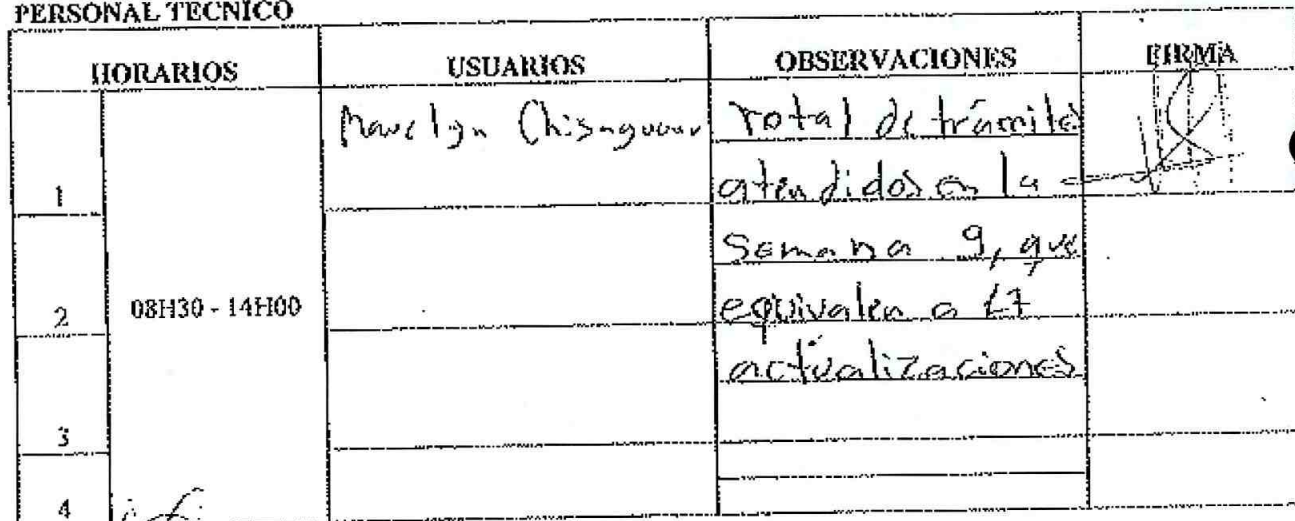 PERSONAL TECNICO
HORARIOS USUARIOS OBSERVACIONES FIRMA
1 08H30 - 14H00 Total de trámites
atendidos en la
2 semana 9, que
equivalen a 17
actualizaciones
3
4